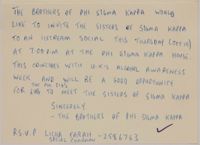 THE BROTHERS OF PHI SIGMA KAPPA WOULD
LIKE TO INVITE THE SISTERS OF SIGMA KAPPA
TO AN ICECREAM SOCIAL THIS THURSDAY (OCT 19)
AT 7:00 P.M AT THE PHI SIGMA KAPPA HOUSE.
THIS COINCIDES WITH U.K.'S ALCOHOL AWARENESS
WEEK AND WILL BE A GOOD OPPORTUNITY
FOR THE PHI SIGS TO MEET THE SISTERS OF SIGMA KAPPA
SINCERELY
- THE BROTHERS OF PHI SIGMA KAPPA
R.S.V.P FARAH - 2586763
SOCIAL CHAIRMAN